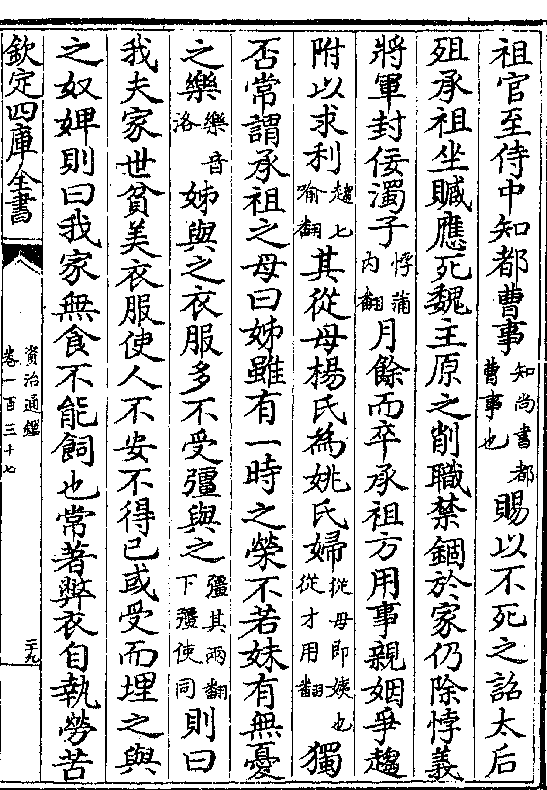 祖官至侍中知都曹事知尚書都曹事也賜以不死之詔太后
殂承祖坐贓應死魏主原之削職禁錮於家仍除悖義
將軍封佞濁子悖蒲内翻月餘而卒承祖方用事親姻爭趨
附以求利趨七喻翻其從母楊氏為姚氏婦從母即姨也從才用翻獨
否常謂承祖之母曰姊雖有一時之榮不若妹有無憂
之樂樂音洛姊與之衣服多不受彊與之彊其兩翻下彊使同則曰
我夫家世貧美衣服使人不安不得已或受而埋之與
之奴婢則曰我家無食不能飼也常著弊衣自執勞苦
欽定四庫全書
資治通鑑
卷一百三十七
二十九